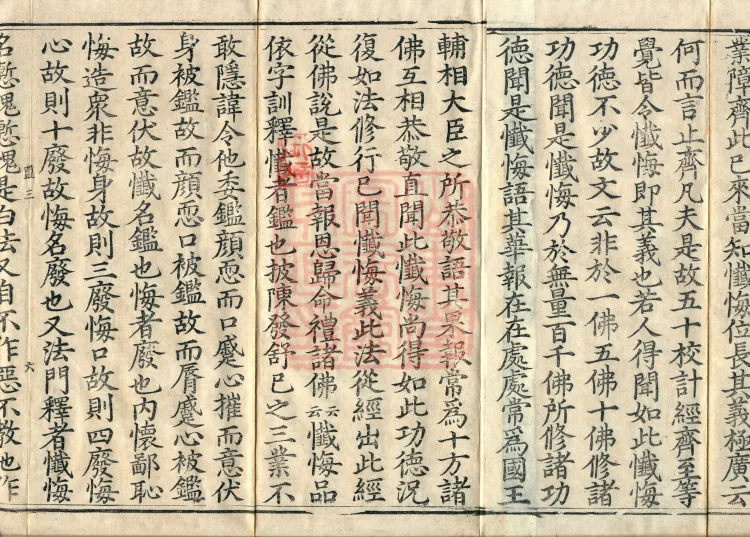 業障齊此已來當知懺悔位長其義極廣云
何而言止齊凡夫是故五十校計經齊至等
覺皆令懺悔即其義也若人得聞如此懺悔
功德不少故文云非於一佛五佛十佛修諸
功德聞是懺悔乃於無量百千佛所修諸功
德聞是懺悔語其華報在在處處常為國王
輔相大臣之所恭敬語其果報常為十方諸
佛互相恭敬直聞此懺悔尚得如此功德況
復如法修行已聞懺悔義此法從經出此經
從佛說是故當報恩歸命禮諸佛云云懺悔品
依字訓釋懺者鑑也披陳發舒已之三業不
敢隱諱令他委鑑顏恧而口蹙心摧而意伏
身被鑑故而顏恧口被鑑故而脣蹙心被鑑
故而意伏故懺名鑑也悔者廢也內懷鄙恥
悔造眾非悔身故則三廢悔口故則四廢悔
心故則十廢故悔名廢也又法門釋者懺悔
名慙愧慙愧是白法又自不作惡不教他作
六